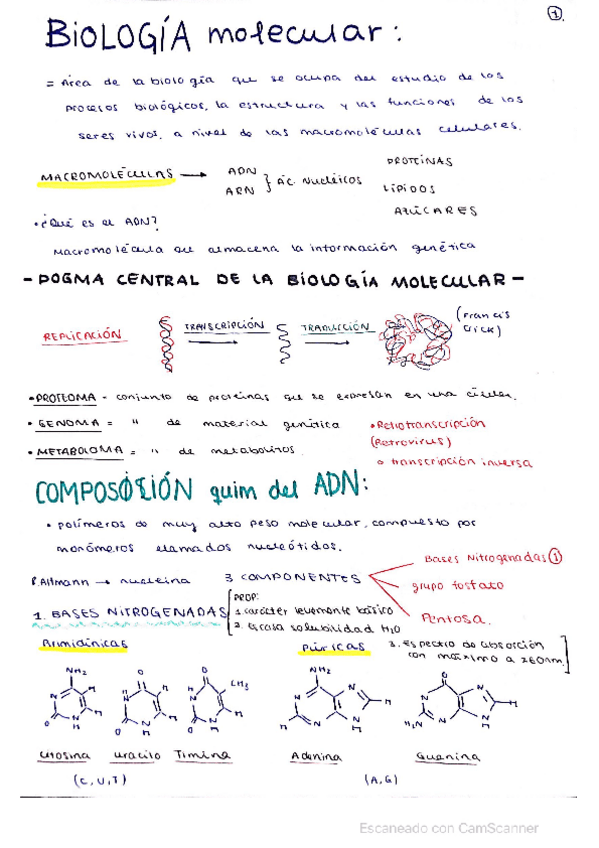 1.
BiOLOGÍA molecular:
= Área de la biología que se ocupa del estudio de los
procesos biológicos, la estructura y las funciones de los
seres vivos, a nivel de las macromoléculas celulares.
MACROMOLÉCULAS → ADN
ARN } Ác. nucleicos
PROTEÍNAS
LÍPIDOS
AZÚCARES
• ¿Qué es el ADN?
Macromolécula que almacena la información genética
- DOGMA CENTRAL DE LA BIOLOGÍA MOLECULAR -
REPLICACIÓN TRANSCRIPCIÓN TRADUCCIÓN (Francis
Crick)
• PROTEOMA - conjunto de proteínas que se expresan en una célula.
• GENOMA = " de material genético
• METABOLOMA = " de metabolitos.
• Retrotranscripción
(Retrovirus)
o transcripción inversa
COMPOSICIÓN quim del ADN:
• polímeros de muy alto peso molecular, compuesto por
monómeros llamados nucleótidos.
R. Altmann → nucleína
3 COMPONENTES
Bases Nitrogenadas ①
grupo fosfato
Pentosa.
1. BASES NITROGENADAS
PROP:
1. carácter levemente básico
2. Escasa solubilidad H2O
3. Espectro de absorción
con máximo a 260nm.
Pirimidínicas
Púricas
NH2 N H O N H
O N H O N H
O CH3 N H O N H
NH2 N N H N N H
O N N H H2N N N H
Citosina Uracilo Timina
Adenina Guanina
(C, U, T)
(A, G)
Escaneado con CamScanner